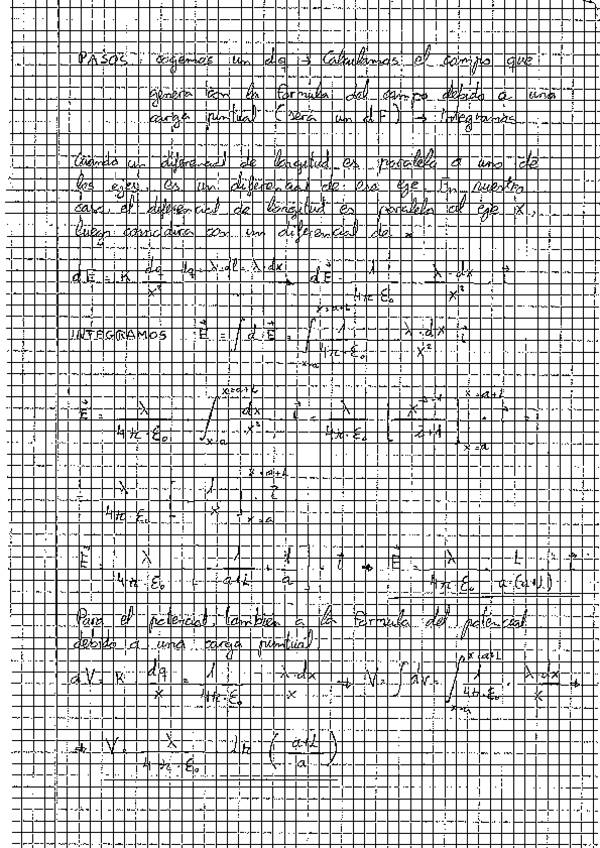 PASOS: cogemos un dq → Calculamos el campo que
genera con la fórmula del campo debido a una
carga puntual (será un dE) → Integramos
Cuando un diferencial de longitud es paralelo a uno de
los ejes, es un diferencial de ese eje. En nuestro
caso, el diferencial de longitud es paralelo al eje x,
luego coincidirá con un diferencial de x
dE = K dq/x² dq = λ·dl = λ·dx → dE⃗ = 1/(4π·ε₀) λ·dx/x² i⃗
INTEGRAMOS E⃗ = ∫dE⃗ = ∫_{x=a}^{x=a+L} 1/(4π·ε₀) λ·dx/x² i⃗
E⃗ = λ/(4π·ε₀) ∫_{x=a}^{x=a+L} dx/x² i⃗ = λ/(4π·ε₀) [x^{-2+1}/(-2+1)]_{x=a}^{x=a+L} · i⃗ =
λ/(4π·ε₀) [-1/x]_{x=a}^{x=a+L} · i⃗
E⃗ = λ/(4π·ε₀) [-1/(a+L) + 1/a] · i⃗ → E⃗ = λ/(4π·ε₀) L/(a·(a+L)) i⃗
Para el potencial, también a la fórmula del potencial
debido a una carga puntual
dV = K dq/x = 1/(4π·ε₀) λ·dx/x → V = ∫dV = ∫_{x=a}^{x=a+L} 1/(4π·ε₀) · λ·dx/x →
→ V = λ/(4π·ε₀) Ln ((a+L)/a)